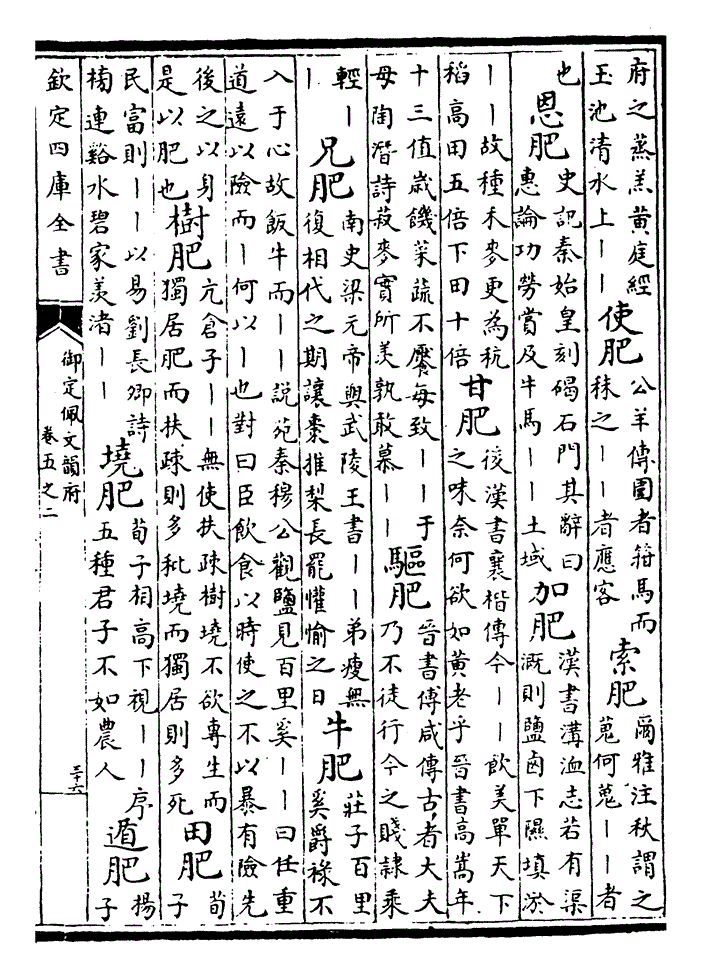 府之蒸羔黄庭經
玉池清水上丨丨
使肥
公羊傳圉者箝馬而
秣之丨丨者應客
索肥
爾雅注秋謂之
蒐何蒐丨丨者
也
恩肥
史記秦始皇刻碣石門其辭曰
惠論功勞賞及牛馬丨丨土域
加肥
漢書溝洫志若有渠
溉則鹽鹵下隰填淤
丨丨故種禾麥更為秔
稻高田五倍下田十倍
甘肥
後漢書襄楷傳今丨丨飲美單天下
之味奈何欲如黄老乎晉書高嵩年
十三值歲饑菜蔬不饜每致丨丨于
母陶潛詩菽麥實所羡孰敢慕丨丨
驅肥
晉書傅咸傳古者大夫
乃不徒行今之賤隸乘
輕丨
丨
兄肥
南史梁元帝與武陵王書丨丨弟瘦無
復相代之期讓棗推梨長罷懽愉之日
牛肥
莊子百里
奚爵祿不
入于心故飯牛而丨丨說苑秦穆公觀鹽見百里奚丨丨曰任重
道遠以險而丨何以丨也對曰臣飲食以時使之不以暴有險先
後之以身
是以肥也
樹肥
亢倉子丨丨無使扶疎樹墝不欲專生而
獨居肥而扶疎則多秕墝而獨居則多死
田肥
荀
子
民富則丨丨以易劉長卿詩
橋連谿水碧家羡渚丨丨
墝肥
荀子相高下視丨丨序
五種君子不如農人
遁肥
揚
子
欽定四庫全書
御定佩文韻府
卷五之二
三十六